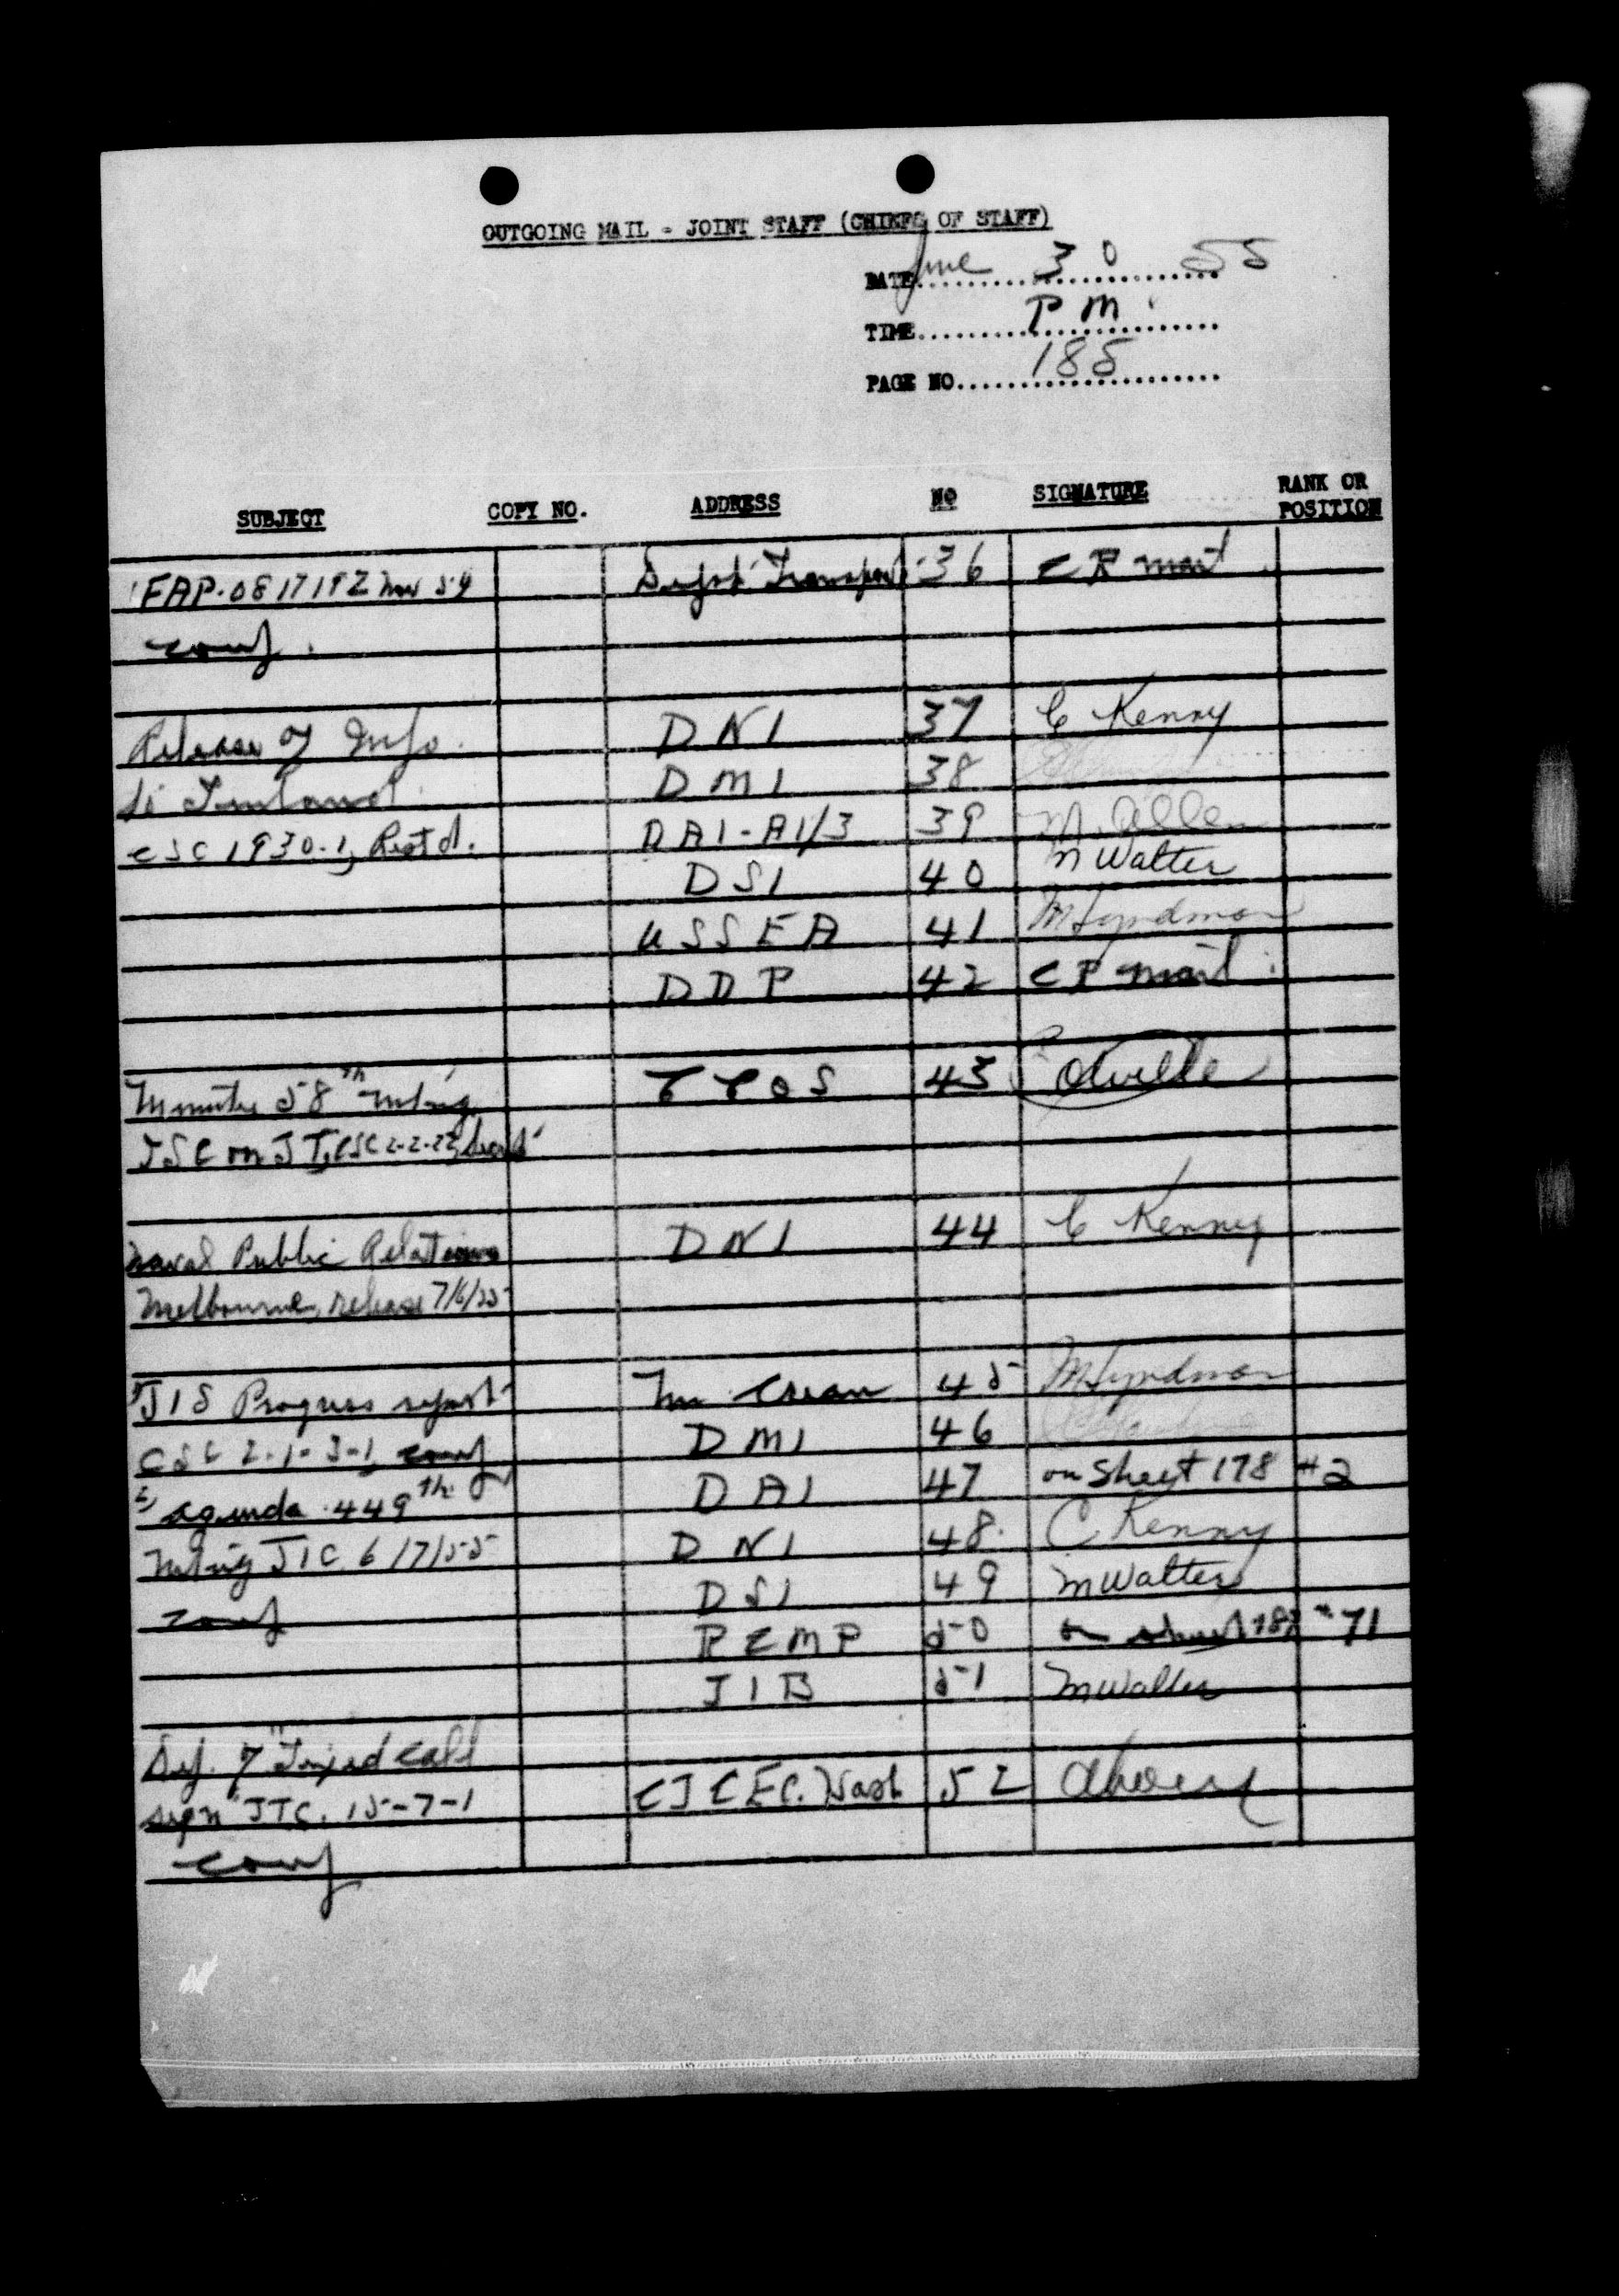 OUTGOING MAIL - JOINT STAFF (CHIEFS OF STAFF)
DATE June 30 55
TIME P M
PAGE NO 185
SUBJECT COPY NO. ADDRESS NO SIGNATURE RANK OR POSITION
FAP. 081719Z Nov 54 Dept. Transport 36 C R mont
conf.
Release of Info. DNI 37 C Kenny
to DMI 38
CSC 1930-1, Rest'd. DAI-AI/3 39 M. Allen
DSI 40 M Walter
USSEA 41 M Lyndman
DDP 42
Minutes 58th mting CCOS 43
JSC on JT, CSC 2-2-22,
Naval Public Relations DNI 44 C Kenny
Melbourne, release 7/6/55
1) JIS Progress report Mr Crean 45 M Lyndman
CSC 2-1-3-1, conf DMI 46
2) agenda 449th DAI 47 on sheet 178 #2
mting JIC 6/7/55 DNI 48. C Kenny
conf DSI 49 M Walter
RCMP 50 on sheet 183 #71
JIB 51 M Walter
Def. of "Fixed call
sign" JTC. 15-7-1 CJCEC. Wash 52
conf